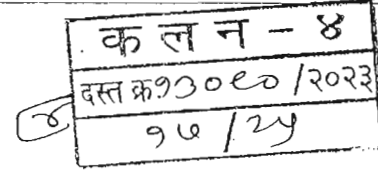 क ल न - ४
दस्त क्र.१३०९० /२०२३
१७ / २५